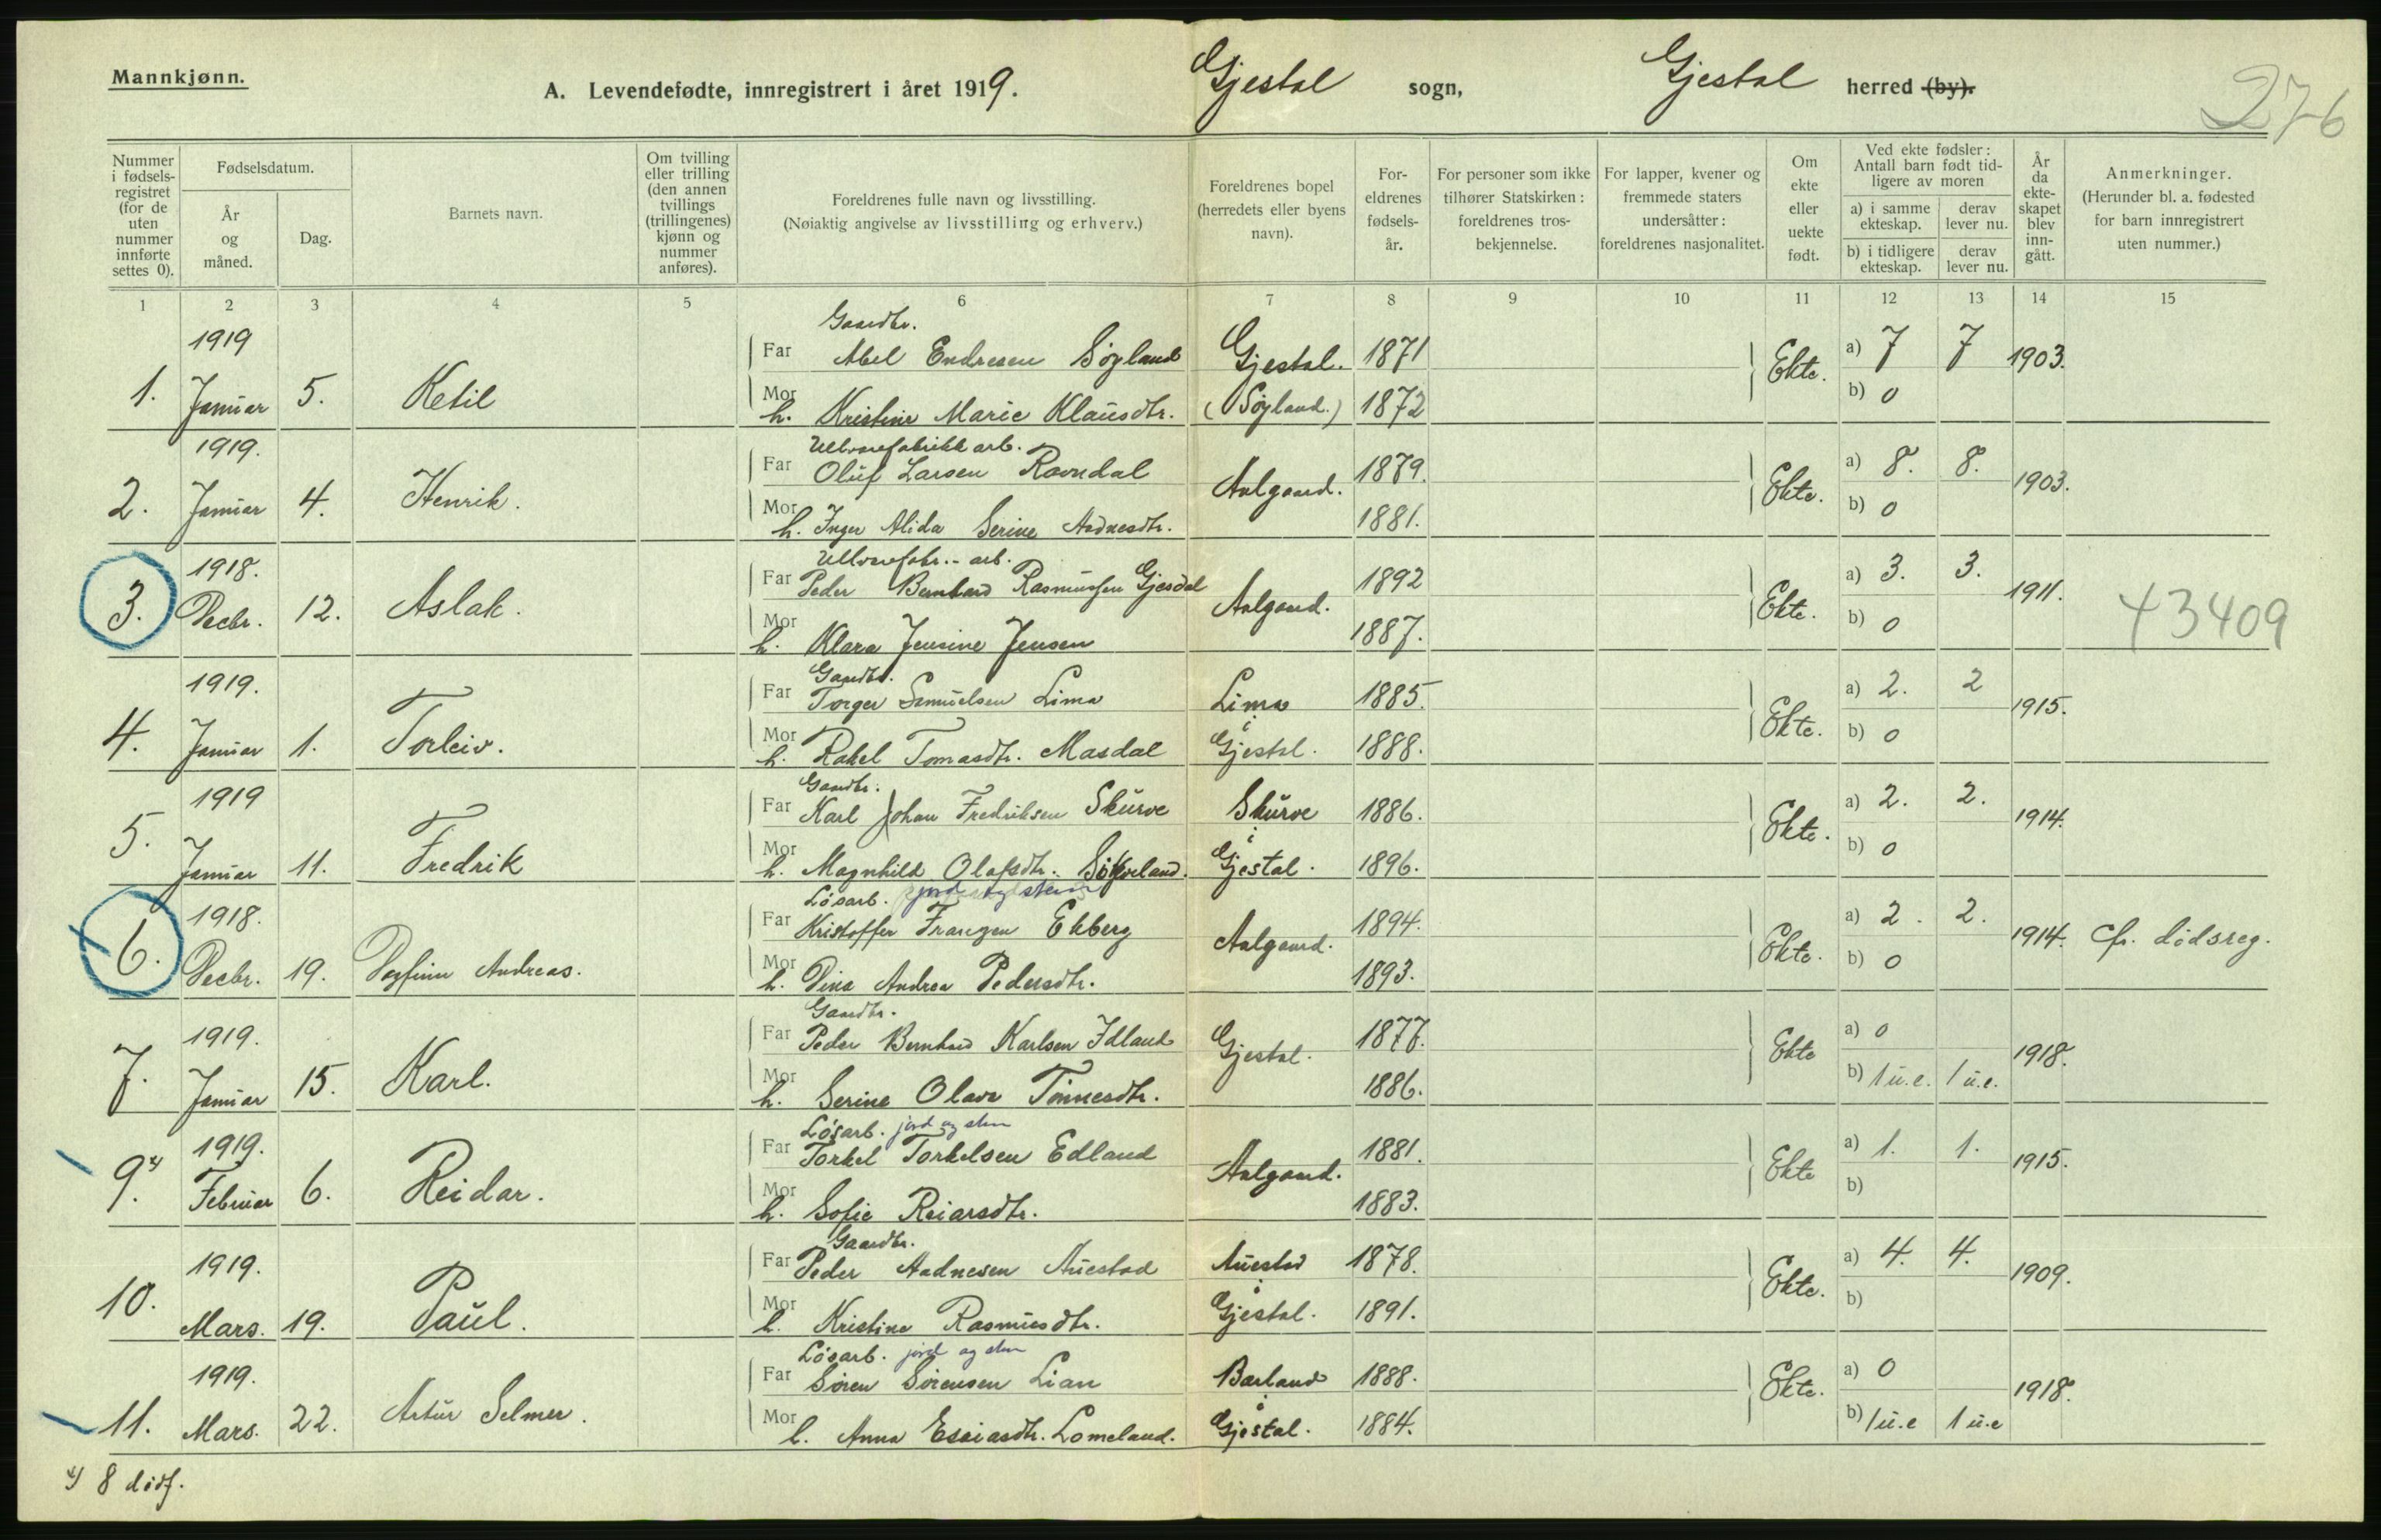 Mannkjønn.
A. Levendefødte, innregistrert i året 1919. Gjestal sogn, Gjestal herred (by).
276
Nummer i fødselsregistret (for de uten nummer innførte settes 0).
Fødselsdatum.
År og måned.
Dag.
Barnets navn.
Om tvilling eller trilling (den annen tvillings (trillingenes) kjønn og nummer anføres).
Foreldrenes fulle navn og livsstilling.
(Nøiaktig angivelse av livsstilling og erhverv.)
Foreldrenes bopel (herredets eller byens navn).
Foreldrenes fødselsår.
For personer som ikke tilhører Statskirken: foreldrenes trosbekjennelse.
For lapper, kvener og fremmede staters undersåtter: foreldrenes nasjonalitet.
Om ekte eller uekte født.
Ved ekte fødsler: Antall barn født tidligere av moren
a) i samme ekteskap. derav lever nu.
b) i tidligere ekteskap. derav lever nu.
År da ekteskapet blev inngått.
Anmerkninger.
(Herunder bl. a. fødested for barn innregistrert uten nummer.)
1 2 3 4 5 6 7 8 9 10 11 12 13 14 15
1919 Gaardbr.
Far Abel Endresen Søyland Gjestal. 1871 a) 7 7
1. Januar 5. Ketil Ekte. 1903.
Mor h. Kristine Marie Klausdtr. (Søyland.) 1872 b) 0
1919. Ullvarefabrikk arb.
Far Oluf Larsen Ravndal 1879. a) 8. 8.
2. Januar 4. Henrik. Aalgaard. Ekte. 1903.
Mor h. Inger Alida Serine Aadnesdtr. 1881. b) 0
1918. Ullvarefabr.-arb.
Far Peder Bernhard Rasmussen Gjesdal 1892 a) 3. 3.
3. Decbr. 12. Aslak. Aalgaard. Ekte. 1911. 43409
Mor h. Klara Jensine Jensen 1887. b) 0
1919. Gaardbr.
Far Torger Samuelsen Lima Lima 1885. a) 2. 2
4. Januar 1. Torleiv. i Ekte. 1915.
Mor h. Rakel Tomasdtr. Masdal Gjestal. 1888. b) 0
1919 Gaardbr.
Far Karl Johan Fredriksen Skurve Skurve 1886. a) 2. 2.
5. Januar 11. Fredrik i Ekte. 1914.
Mor h. Magnhild Olafsdtr. Gjestal. 1896. b) 0
1918. Løsarb. jord og sten
Far Kristoffer Franzen Ekberg 1894. a) 2. 2.
6. Decbr. 19. Dagfinn Andreas. Aalgaard. Ekte. 1914. Cfr. dødsreg.
Mor h. Dina Andrea Pedersdtr. 1893. b) 0
1919. Gaardbr.
Far Peder Bernhard Karlsen Idland 1877. a) 0
7. Januar 15. Karl. Gjestal. Ekte 1918.
Mor h. Serine Olava Tønnesdtr. 1886. b) 1 u.e. 1 u.e.
1919. Løsarb. jord og sten
Far Torkel Torkelsen Edland 1881. a) 1. 1.
9. x) Februar 6. Reidar. Aalgaard. Ekte 1915.
Mor h. Sofie Reiarsdtr. 1883. b)
1919. Gaardbr.
Far Peder Aadnesen Auestad Auestad 1878. a) 4. 4.
10. Mars. 19. Paul. i Ekte. 1909.
Mor h. Kristine Rasmusdtr. Gjestal. 1891. b)
1919. Løsarb. jord og sten
Far Søren Sørensen Lian Barland 1888. a) 0
11. Mars. 22. Artur Selmer. i Ekte. 1918.
Mor h. Anna Esaiasdtr. Lomeland. Gjestal. 1884. b) 1 u.e 1 u.e
x) 8 dødf.